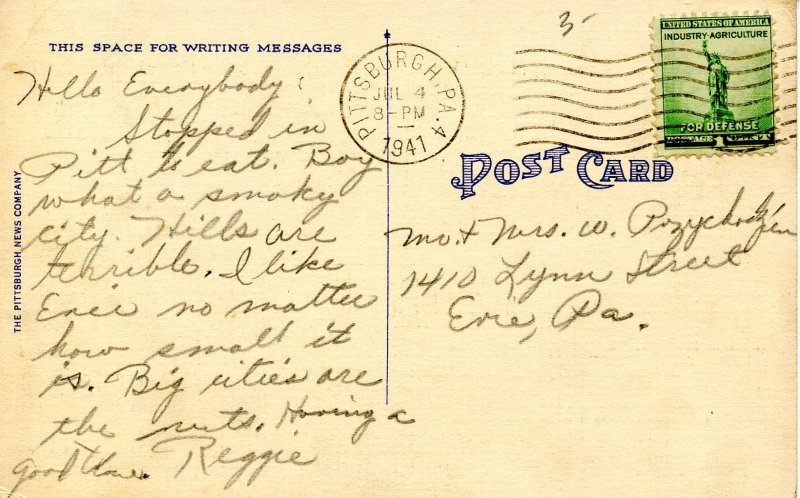 THIS SPACE FOR WRITING MESSAGES
Hello Everybody:
Stopped in
Pitt to eat. Boy
what a smoky
city. Hills are
terrible. I like
Erie no matter
how small it
is. Big cities are
the nuts. Having a
good time. Reggie
THE PITTSBURGH NEWS COMPANY
PITTSBURGH, PA. 4
JUL 4
8-PM
1941
3-
UNITED STATES OF AMERICA
INDUSTRY-AGRICULTURE
FOR DEFENSE
POSTAGE 1 CENT
POST CARD
Mr. & Mrs. W.
1410 Lynn Street
Erie, Pa.